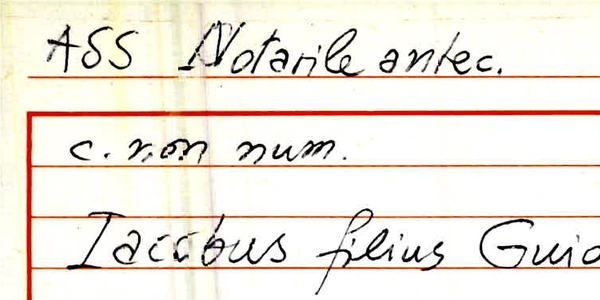 ASS Notarile antec.
c. non num.
Iacobus filius Guid